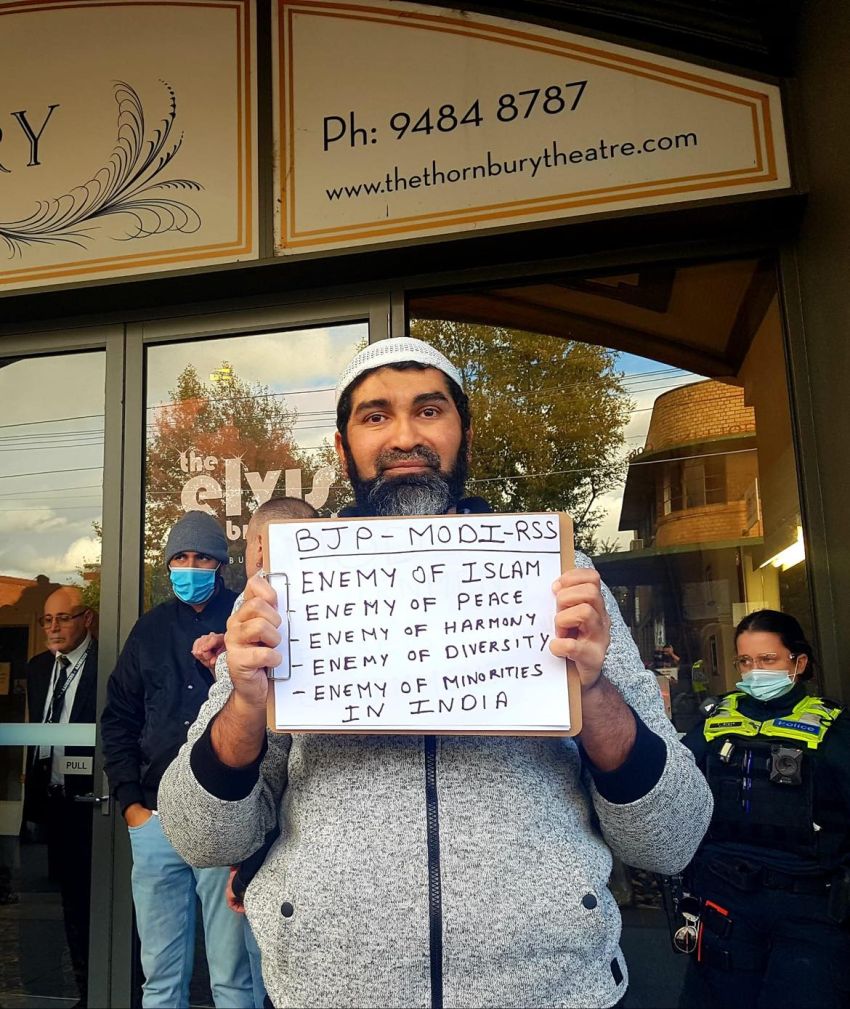 RY
Ph: 9484 8787
www.thethornburytheatre.com
the
elvis
BJP-MODI-RSS
- ENEMY OF ISLAM
- ENEMY OF PEACE
- ENEMY OF HARMONY
- ENEMY OF DIVERSITY
- ENEMY OF MINORITIES
IN INDIA
PULL
Police